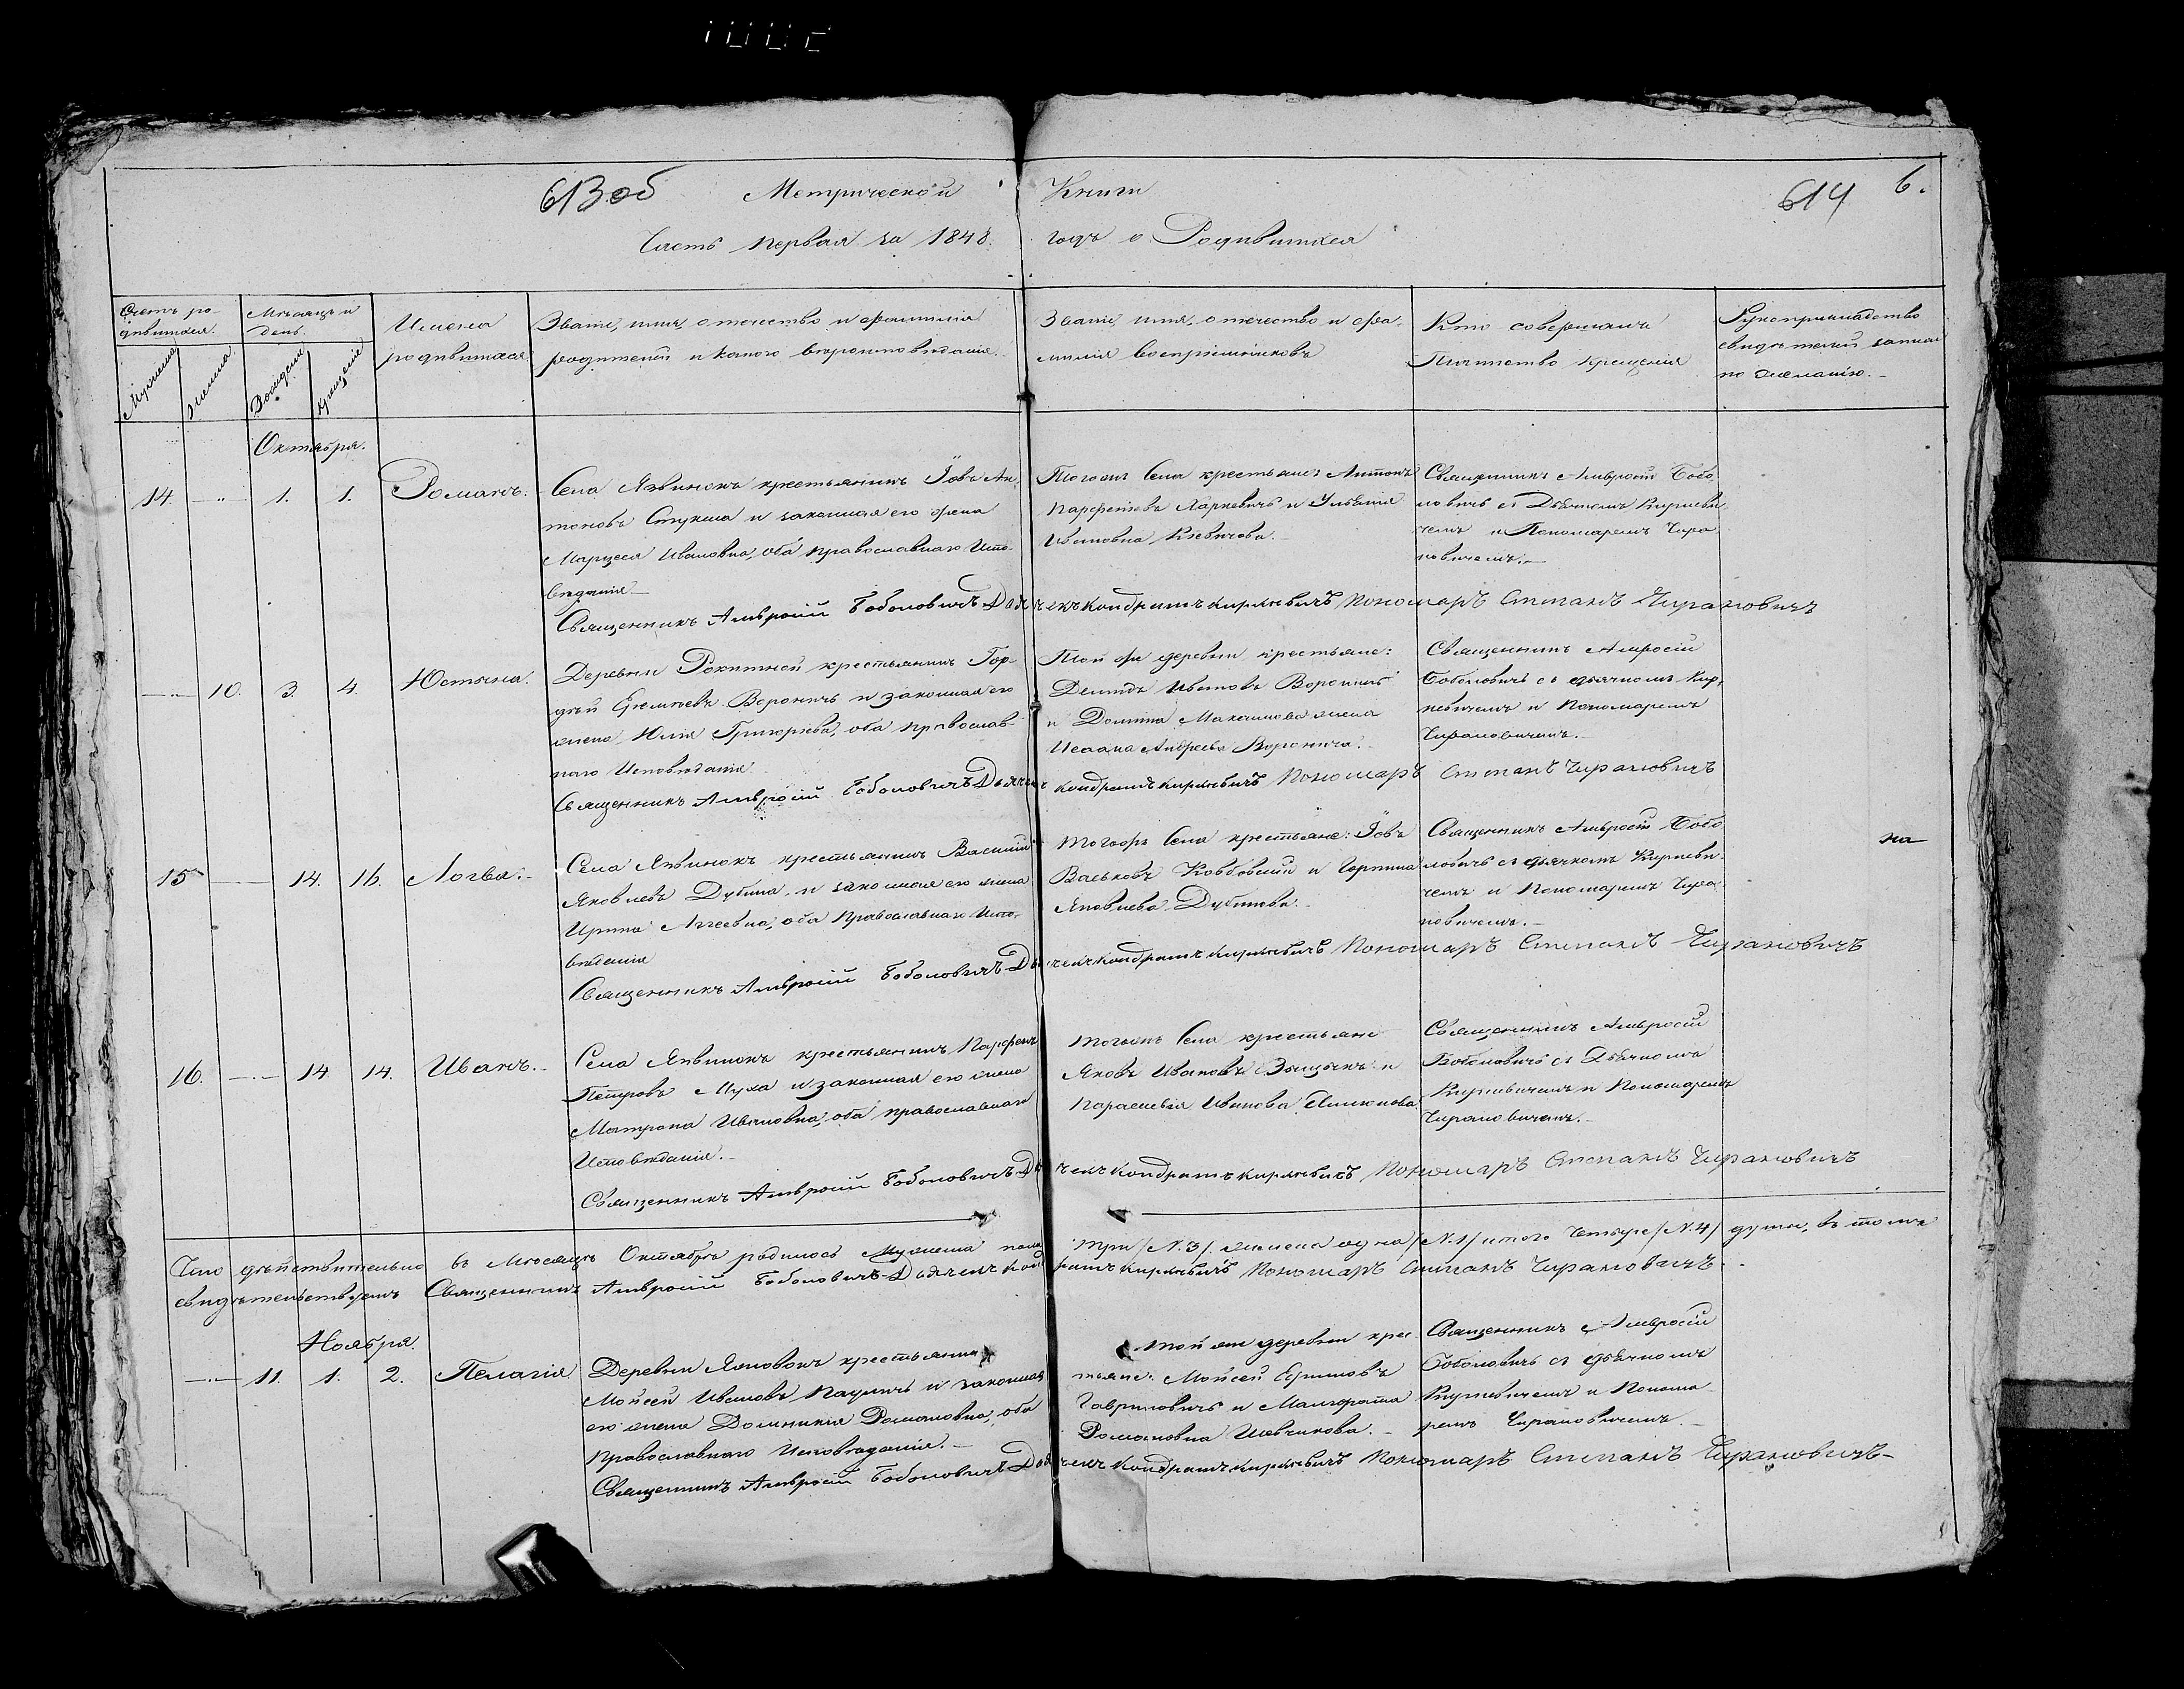 613об Метрической Книги 614 6.
Часть первая за 1848. годъ о Родившихся
Счетъ ро-
дившихся.
Мужеска
Женска
Мѣсяцъ и
день.
Рожденія
крещенія
Имена
родившихся.
Званіе, имя, отечество и фамилія
родителей и какого вѣроисповѣданія.
Званіе, имя, отечество и фа-
милія Воспріемниковъ
Кто совершалъ
Таинство крещенія
Рукоприкладство
свидѣтелей записи
по желанію.
Октября.
14. 1. 1. Романъ.
Села Язвинокъ крестьянинъ Іовъ Ан-
тоновъ Стукша и законная его жена
Марцеля Ивановна, оба православнаго Испо-
вѣданія
Тогожъ Села крестьяне Антонъ
Парфеновъ Харкевичъ и Ульянія
Ивановна
Священникъ Амвросій Бобо-
ловичъ съ Дьячкомъ Кирневи-
чемъ и Пономаремъ Чира-
новичемъ.
Священникъ Амвросій Боболовичъ Дьячекъ Кондратъ Кирневичъ Пономаръ Степанъ Чирановичъ
10. 3 4. Юстына.
Деревни Рокитной крестьянинъ Гор-
дѣй Вороничъ и законная его
жена Юлія Григорьева, оба православ-
наго Исповѣданія
Той же деревни крестьяне:
Демидъ Ивановъ Вороничъ
и Домна Максимова жена
Исаака Андреева Воронича.
Священникъ Амвросій
Боболовичъ съ дьячкомъ Кир-
невичемъ и Пономаремъ
Чирановичемъ.
Священникъ Амвросій Боболовичъ Дьячекъ Кондратъ Кирневичъ Пономаръ Степанъ Чирановичъ
15 14. 16. Логвинъ.
Села Язвинокъ крестьянинъ Василій
Яковлевъ Дубина, и законная его жена
Ирина оба Православнаго Испо-
вѣданія
Тогожъ Села крестьяне: Іовъ
Васьковъ и Горпина
Яковлева Дубинова.
Священникъ Амвросій Бобо-
ловичъ съ дьячкомъ Кирневи-
чемъ и Пономаремъ Чира-
новичемъ.
на
Священникъ Амвросій Боболовичъ Дьячекъ Кондратъ Кирневичъ Пономаръ Степанъ Чирановичъ
16. 14 14. Иванъ.
Села Язвинокъ крестьянинъ Парфенъ
Петровъ Муха и законная его жена
Матрона Ивановна, оба православнаго
Исповѣданія.
Тогожъ Села крестьяне
Яковъ Ивановъ и
Параскевія Иванова
Священникъ Амвросій
Боболовичъ съ Дьячкомъ
Кирневичемъ и Пономаремъ
Чирановичемъ.
Священникъ Амвросій Боболовичъ Дьячекъ Кондратъ Кирневичъ Пономаръ Степанъ Чирановичъ
Что дѣйствительно въ Мѣсяцѣ Октябрѣ родилось Мужеска пола три /N.3/ женска одна /N.1/ итого Четыре /N.4/ души, въ томъ
свидѣтельствуемъ Священникъ Амвросій Боболовичъ Дьячекъ Кондратъ Кирневичъ Пономаръ Степанъ Чирановичъ
Ноября.
11. 1. 2. Пелагія
Деревни Яновокъ крестьянинъ
Мойсей Ивановъ и законная
его жена Доминикія Романовна, оба
Православнаго Исповѣданія.
Той же деревни крес-
тьяне: Мойсей
Гавриловичъ и
Романовна
Священникъ Амвросій
Боболовичъ съ дьячкомъ
Кирневичемъ и Понома-
ремъ Чирановичемъ.
Священникъ Амвросій Боболовичъ Дьячекъ Кондратъ Кирневичъ Пономаръ Степанъ Чирановичъ